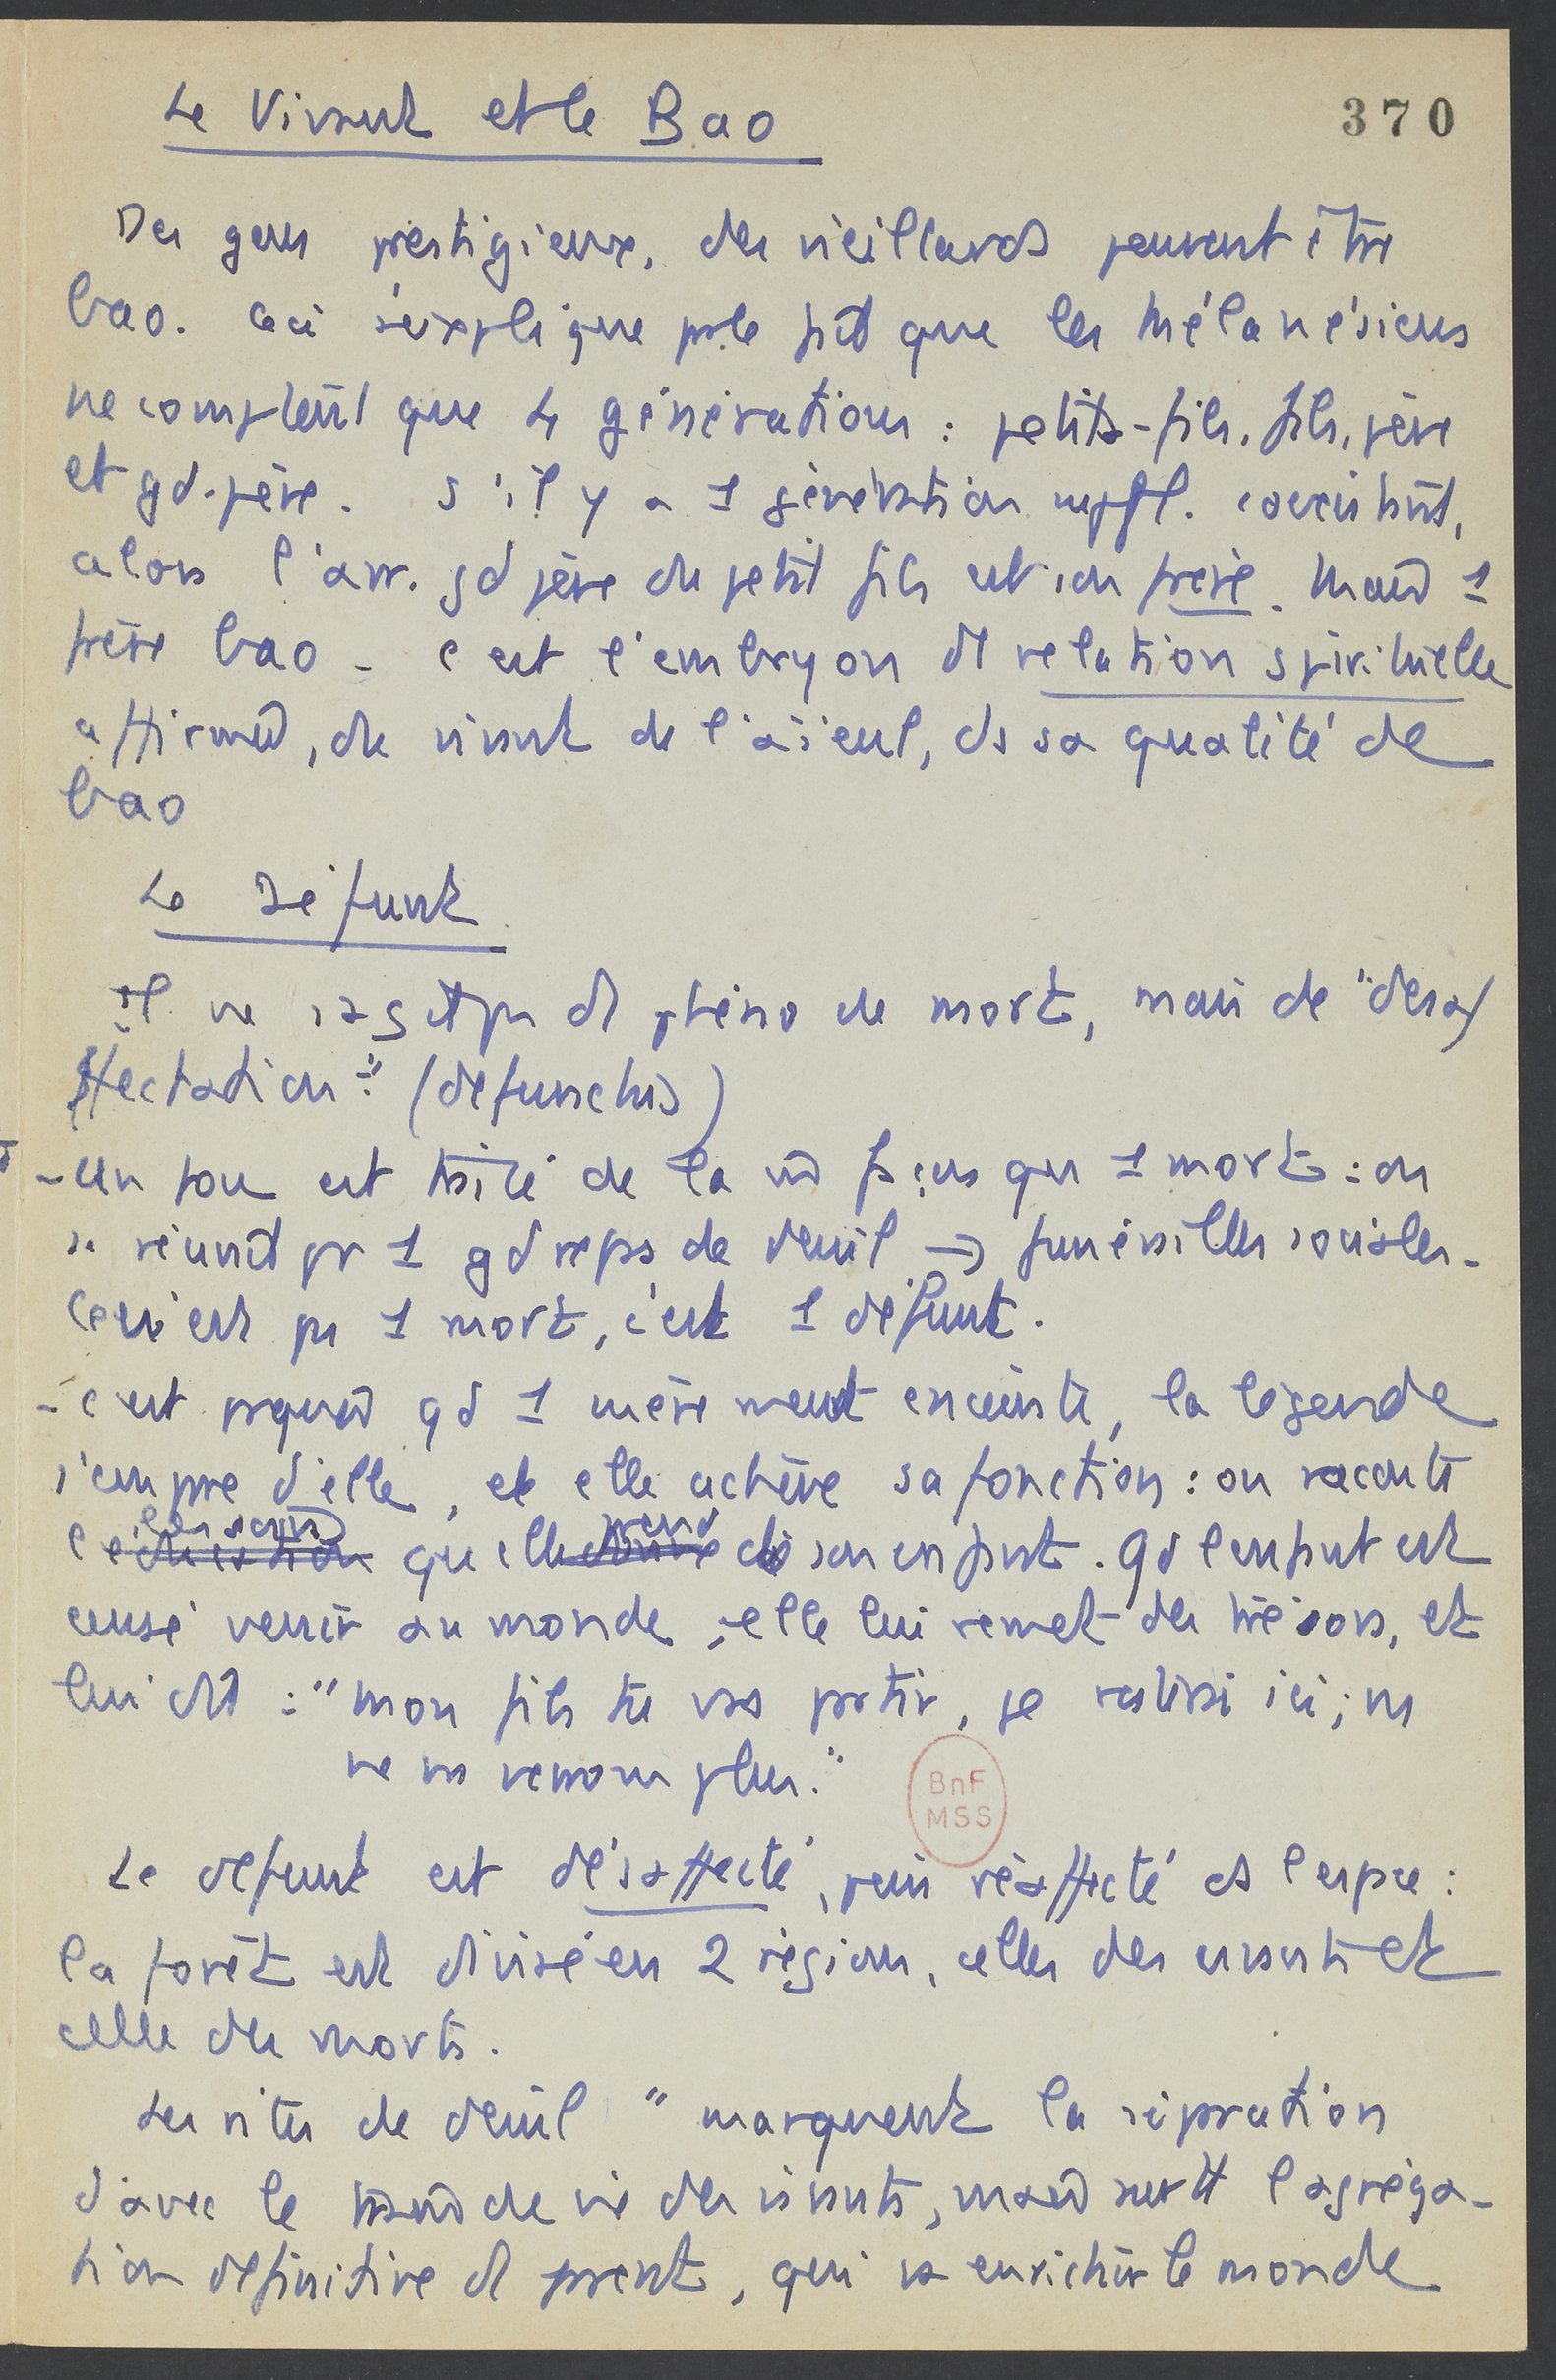 Le Vivant et le Bao
370
Des gens prestigieux, des vieillards peuvent être
bao. Ceci s'explique par le fait que les Mélanésiens
ne comptent que 4 générations : petits-fils, fils, père
et gd-père. S'il y a 1 génération suppl. coexistant,
alors l'arr. gd père du petit fils est son frère. Mais 1
frère bao - c'est l'embryon d relation spirituelle
affirmée, du vivant de l'aïeul, ds sa qualité de
bao
Le Défunt
il ne s'agit pas d phéno de mort, mais de "désa
ffectation" (defunctus)
- Un fou est traité de la m façon qu 1 mort : on
se réunit pr 1 gd repas de deuil → funérailles sociales -
Ce n'est pas 1 mort, c'est 1 défunt.
- c'est pourquoi qd 1 mère meurt enceinte, la légende
s'empare d'elle, et elle achève sa fonction : on raconte
l'éducation les soins qu'elle donne prend de son enfant. Qd l'enfant est
censé venir au monde, elle lui remet des trésors, et
lui dit : "mon fils tu vas partir, je resterai ici ; ns
ne ns verrons plus."
BnF
MSS
Le défunt est désaffecté, puis réaffecté ds l'espace :
la forêt est divisée en 2 régions, celles des vivants et
celle des morts.
Les rites de deuil "marquent la séparation
d'avec le mode de vie des vivants, mais surtt l'agréga-
tion définitive d parent, qui va enrichir le monde